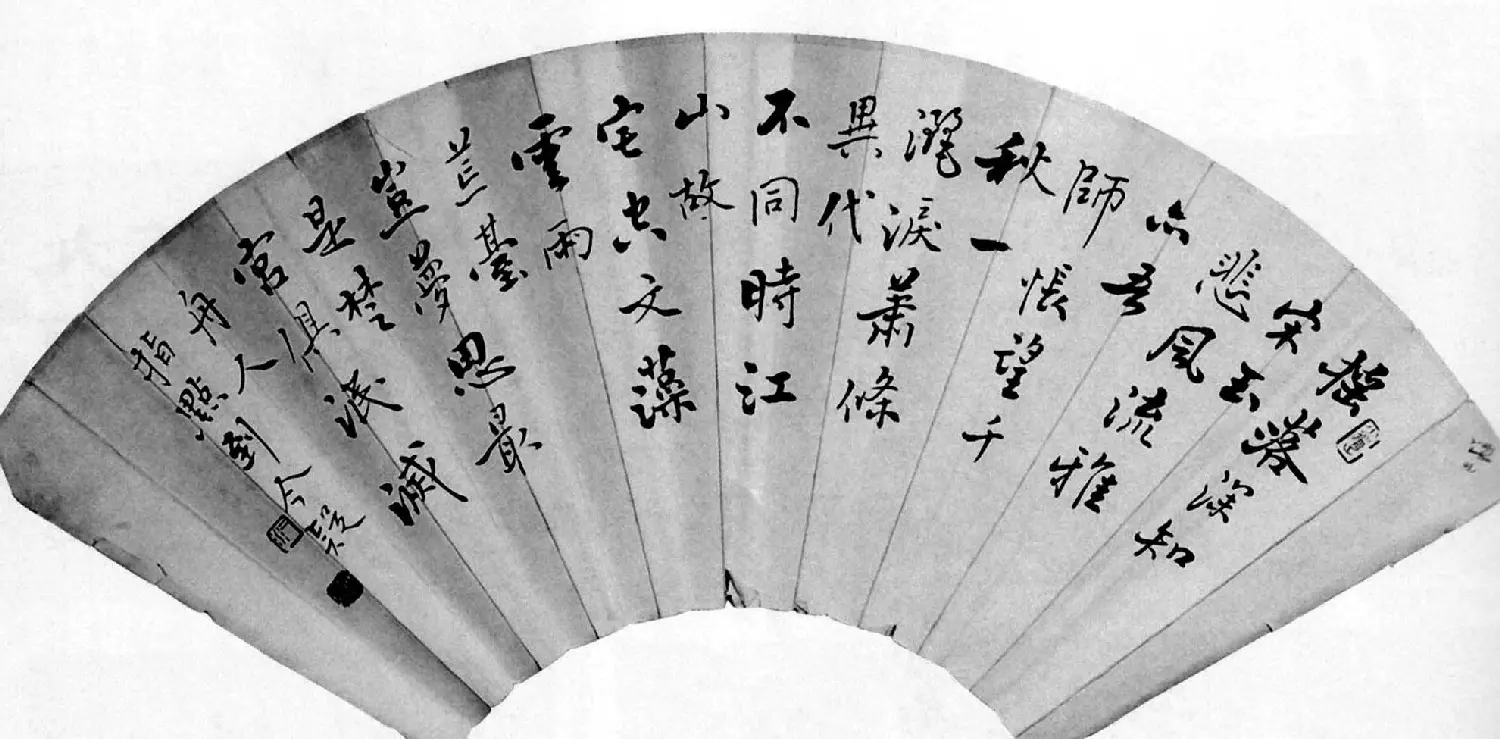 搖落深知
宋玉
悲風流雅
亦吾
師悵望千
秋一
灑淚蕭條
異代
不同時江
山故
宅空文藻
雲雨
荒臺
豈夢思最
是楚
宮俱泯滅
舟人
指點到今疑